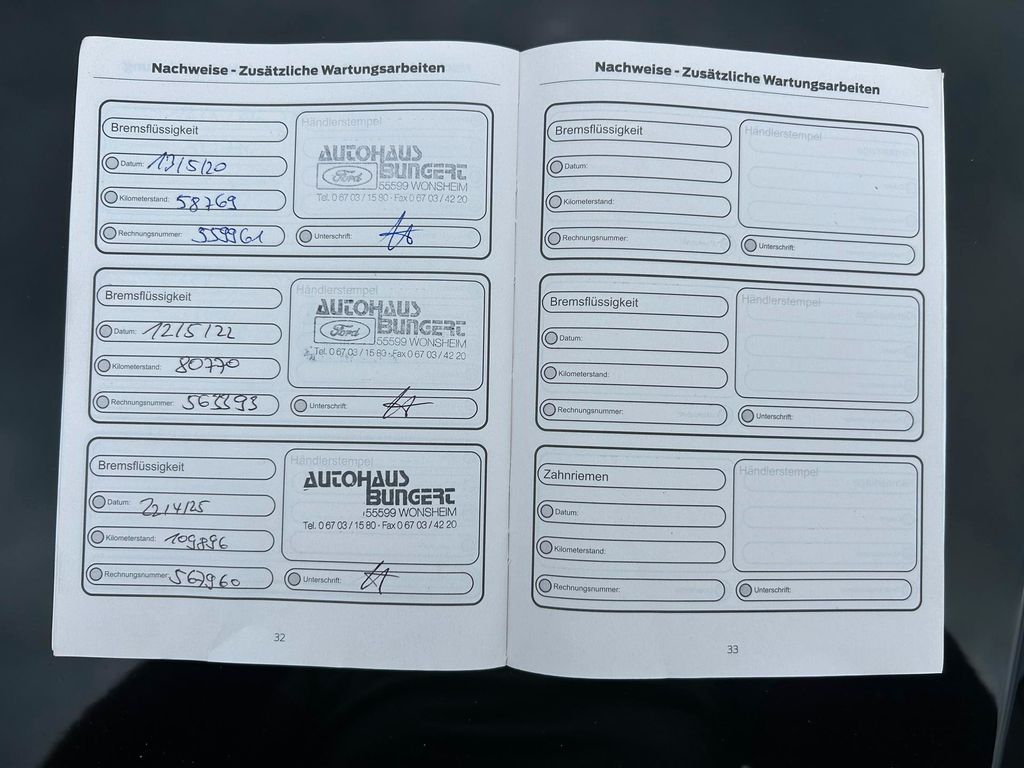 Nachweise - Zusätzliche Wartungsarbeiten
Bremsflüssigkeit
Datum: 13/5/20
Kilometerstand: 58769
Rechnungsnummer: 559961
Händlerstempel
AUTOHAUS
BUNGERT
Ford
55599 WONSHEIM
Tel. 0 67 03 / 15 80 · Fax 0 67 03 / 42 20
Unterschrift:
Bremsflüssigkeit
Datum: 12/5/22
Kilometerstand: 80770
Rechnungsnummer: 563393
Händlerstempel
AUTOHAUS
BUNGERT
Ford
55599 WONSHEIM
Tel. 0 67 03 / 15 80 · Fax 0 67 03 / 42 20
Unterschrift:
Bremsflüssigkeit
Datum: 22/4/25
Kilometerstand: 109896
Rechnungsnummer: 567960
Händlerstempel
AUTOHAUS
BUNGERT
55599 WONSHEIM
Tel. 0 67 03 / 15 80 · Fax 0 67 03 / 42 20
Unterschrift:
32
Nachweise - Zusätzliche Wartungsarbeiten
Bremsflüssigkeit
Datum:
Kilometerstand:
Rechnungsnummer:
Händlerstempel
Unterschrift:
Bremsflüssigkeit
Datum:
Kilometerstand:
Rechnungsnummer:
Händlerstempel
Unterschrift:
Zahnriemen
Datum:
Kilometerstand:
Rechnungsnummer:
Händlerstempel
Unterschrift:
33